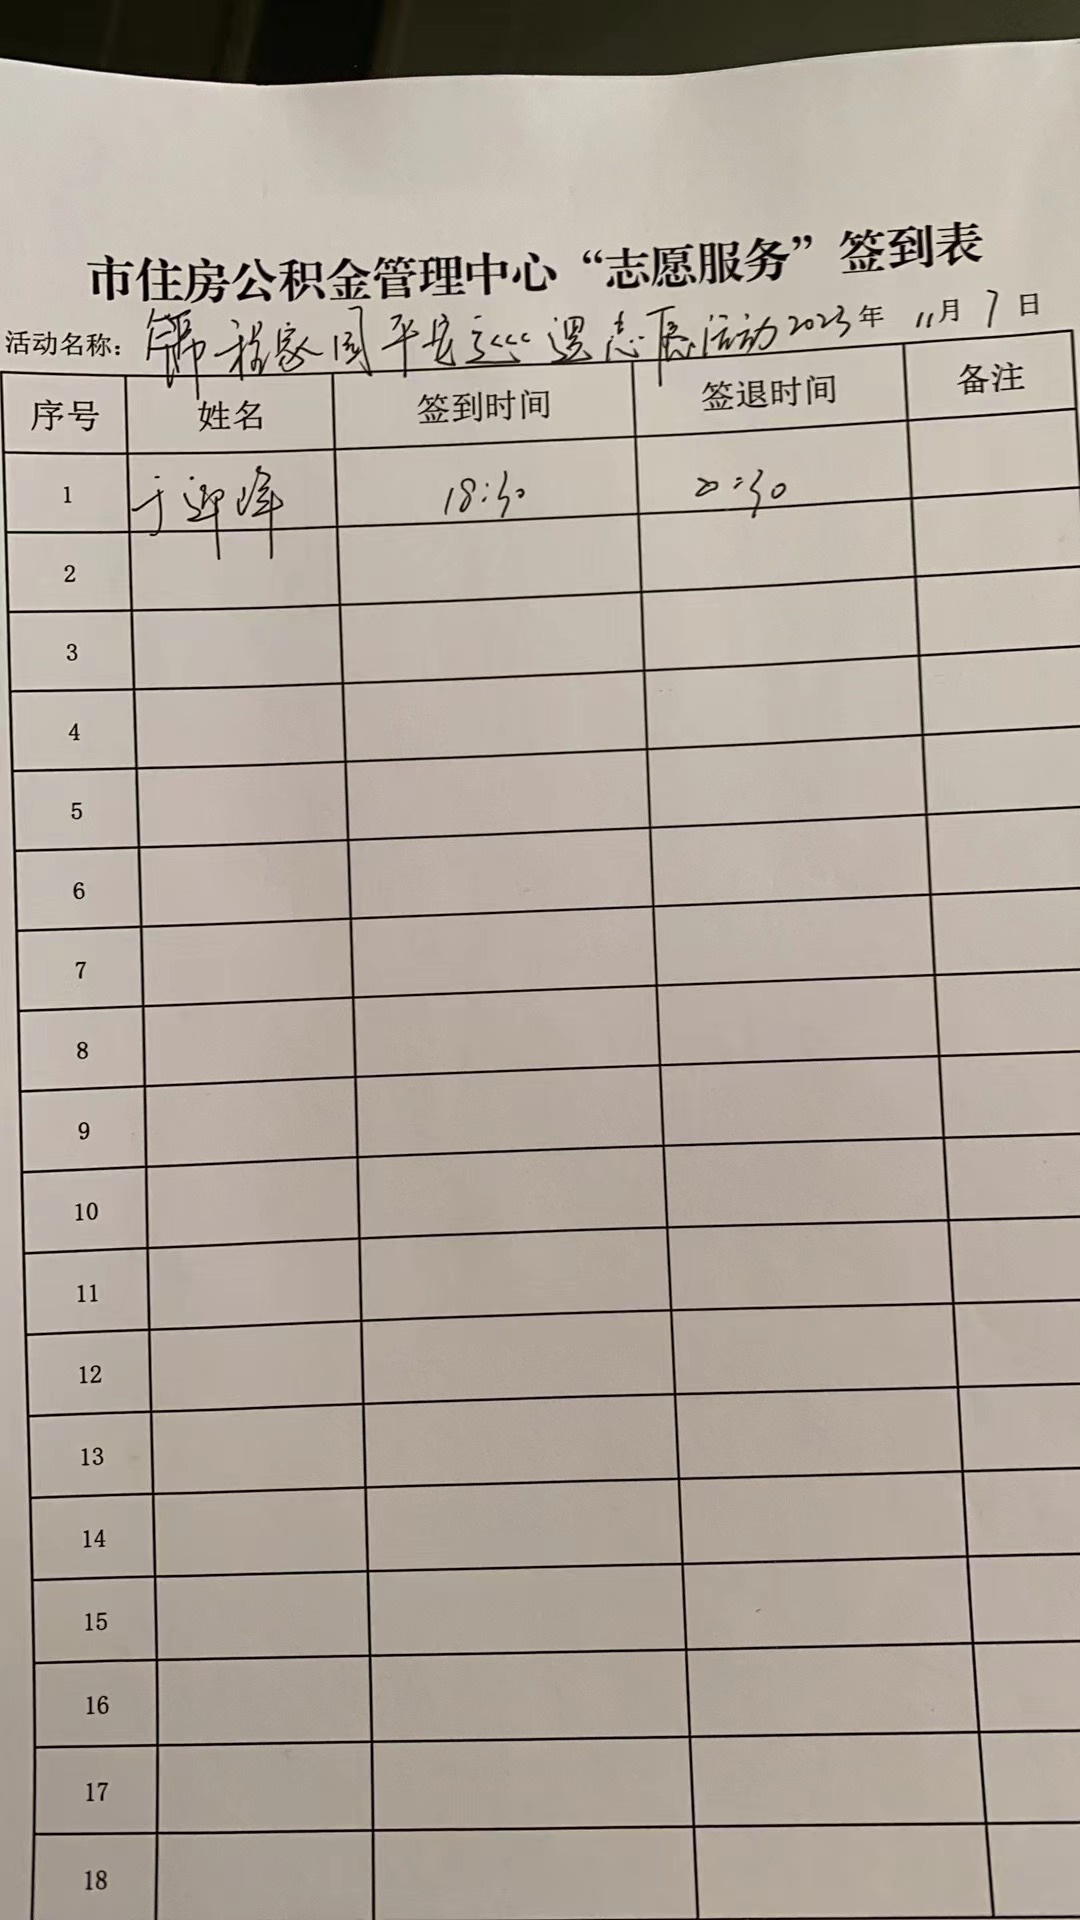 市住房公积金管理中心“志愿服务”签到表
活动名称：锦程家园平安巡逻志愿活动 2023年 11月 7日
序号 姓名 签到时间 签退时间 备注
1 于迎峰 18:30 20:30
2
3
4
5
6
7
8
9
10
11
12
13
14
15
16
17
18